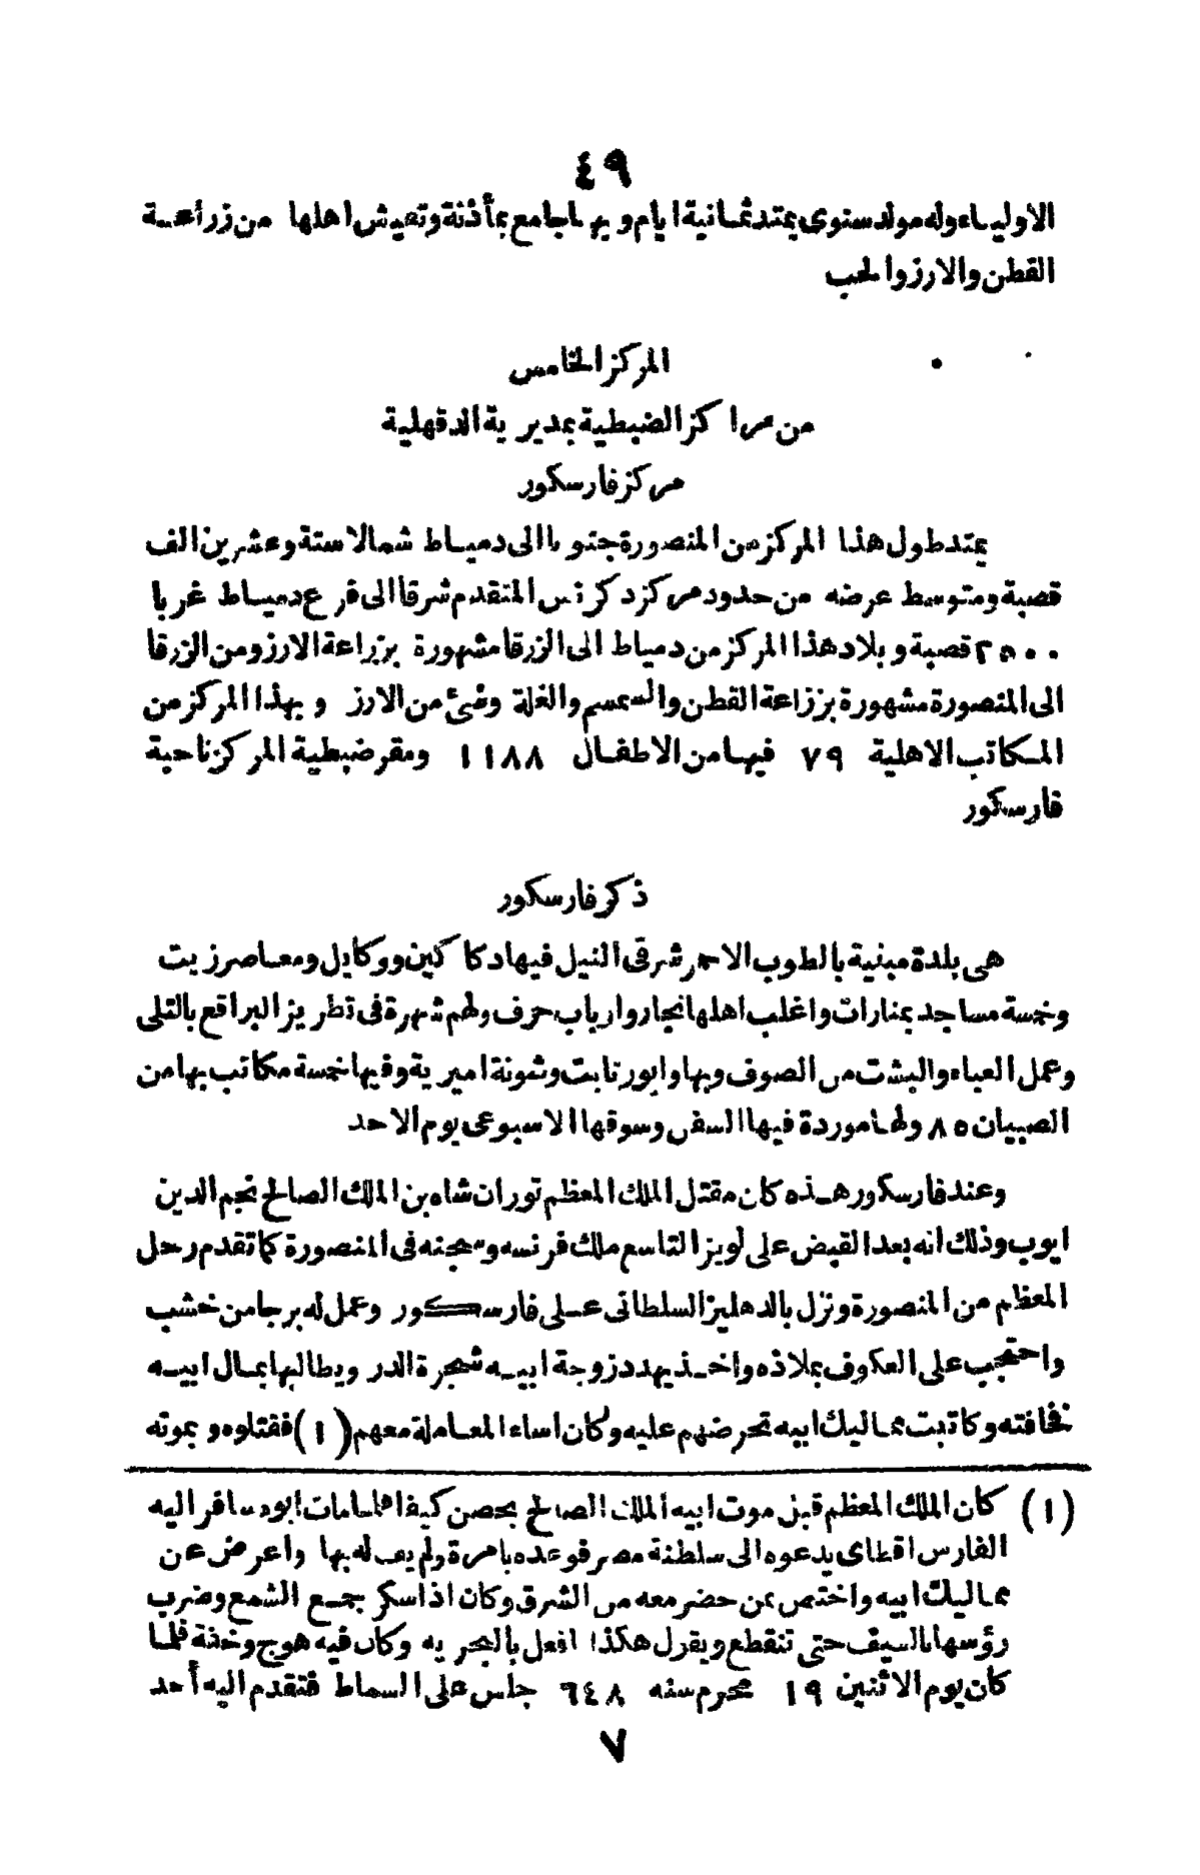 ٤٩
الاولياء وله مولد سنوى يمتد ثمانية ايام وبها جامع بمأذنة وتعيش اهلها من زراعة
القطن والارز والحب
المركز الخامس
من مراكز الضبطية بمديرية الدقهلية
مركز فارسكور
يمتد طول هذا المركز من المنصورة جنوبا الى دمياط شمالا ستة وعشرين الف
قصبة ومتوسط عرضه من حدود مركز دكرنس المتقدم شرقا الى فرع دمياط غربا
٢٥٠٠ قصبة وبلاد هذا المركز من دمياط الى الزرقا مشهورة بزراعة الارز ومن الزرقا
الى المنصورة مشهورة بزراعة القطن والسمسم والغلة وشئ من الارز وبهذا المركز من
المكاتب الاهلية ٧٩ فيها من الاطفال ١١٨٨ ومقر ضبطية المركز ناحية
فارسكور
ذكر فارسكور
هى بلدة مبنية بالطوب الاحمر شرقى النيل فيها دكاكين ووكايل ومعاصر زيت
وخمسة مساجد بمنارات واغلب اهلها تجار وارباب حرف ولهم شهرة فى تطريز البراقع بالتلى
وعمل العباء والبشت من الصوف وبها وابور ثابت وشونة اميرية وفيها خمسة مكاتب بها من
الصبيان ٨٥ ولها موردة فيها السفن وسوقها الاسبوعى يوم الاحد
وعند فارسكور هذه كان مقتل الملك المعظم توران شاه بن الملك الصالح نجم الدين
ايوب وذلك انه بعد القبض على لويز التاسع ملك فرنسه وسجنه فى المنصورة كما تقدم رحل
المعظم من المنصورة ونزل بالدهليز السلطانى على فارسكور وعمل له برجا من خشب
واحتجب على العكوف بملاذه واخذ يهدد زوجة ابيه شجرة الدر ويطالبها بمال ابيه
فخافته وكاتبت مماليك ابيه تحرضهم عليه وكان اساء المعاملة معهم (١) فقتلوه وبموته
(١) كان الملك المعظم قبل موت ابيه الملك الصالح بحصن كيفا فلما مات ابوه سافر اليه
الفارس اقطاى يدعوه الى سلطنة مصر فوعده بامرة ولم يف له بها واعرض عن
مماليك ابيه واختص بمن حضر معه من الشرق وكان اذا سكر جمع الشمع وضرب
رؤسها بالسيف حتى تنقطع ويقول هكذا افعل بالبحريه وكان فيه هوج وخفة فلما
كان يوم الاثنين ١٩ محرم سنه ٦٤٨ جلس على السماط فتقدم اليه أحد
٧